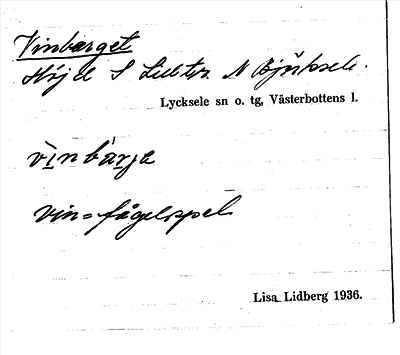 Vinberget
Höjd S Lubtr. N Björksele.
Lycksele sn o. tg, Västerbottens l.
vìnbárje
vin = fågelspel
Lisa Lidberg 1936.